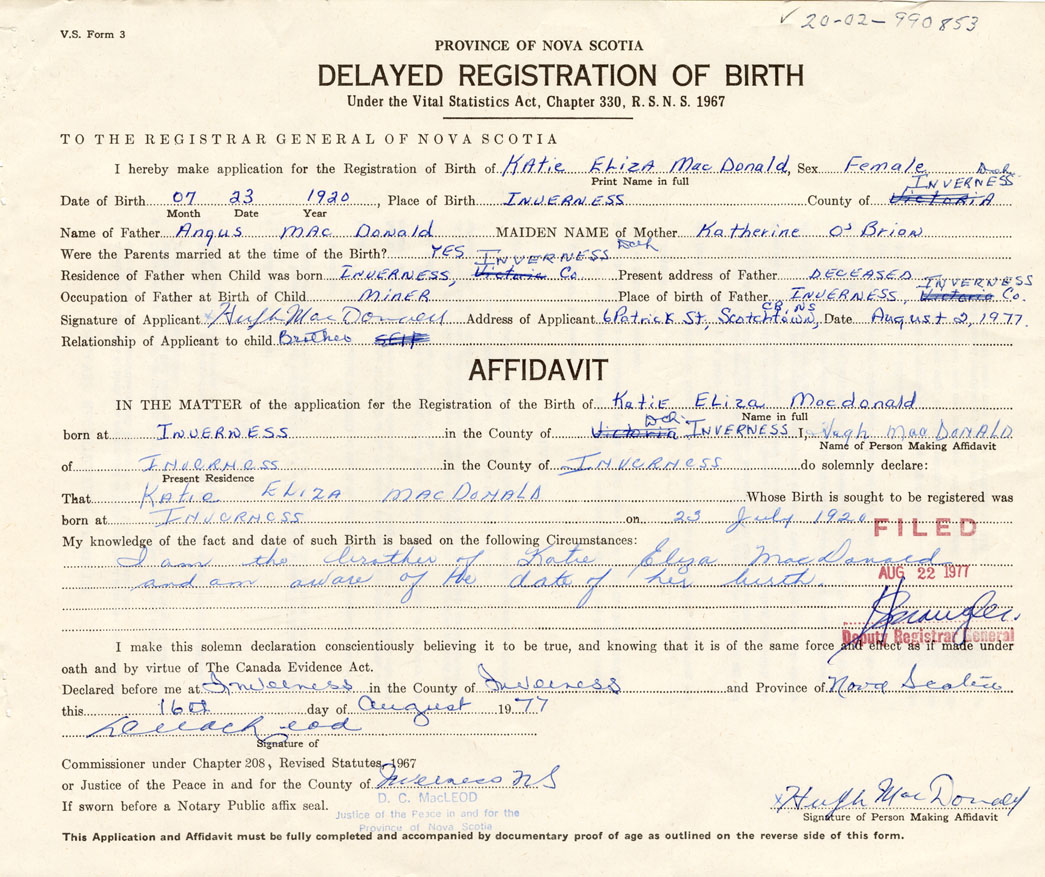 ✓ 20-02-990853
V.S. Form 3
PROVINCE OF NOVA SCOTIA
DELAYED REGISTRATION OF BIRTH
Under the Vital Statistics Act, Chapter 330, R. S. N. S. 1967
TO THE REGISTRAR GENERAL OF NOVA SCOTIA
I hereby make application for the Registration of Birth of KAtie ELizA MacDonald, Sex Female
Print Name in full
INVERNESS
Date of Birth 07 23 1920, Place of Birth INVERNESS County of VictoRIA
Month Date Year
Name of Father Angus MAc Donald MAIDEN NAME of Mother Katherine O'Brion
Were the Parents married at the time of the Birth? YES INVERNESS
Residence of Father when Child was born INVERNESS, Victoria Co Present address of Father DECEASED INVERNESS
Occupation of Father at Birth of Child MINER Place of birth of Father INVERNESS, Victoria Co.
CB. NS
Signature of Applicant x Hugh MacDonald Address of Applicant 6 Patrick St, Scotchtown, Date August 2, 1977
Relationship of Applicant to child Brother SELF
AFFIDAVIT
IN THE MATTER of the application for the Registration of the Birth of Katie ELiza Macdonald
Name in full
born at INVERNESS in the County of Victoria INVERNESS I, Hugh MacDONALD
Name of Person Making Affidavit
of INVERNESS in the County of INVERNESS do solemnly declare:
Present Residence
That KAtie ELIZA MACDONALD Whose Birth is sought to be registered was
born at INVERNESS on 23 July 1920
FILED
My knowledge of the fact and date of such Birth is based on the following Circumstances:
I am the brother of Katie Eliza MacDonald
and am aware of the date of her birth.
AUG 22 1977
Deputy Registrar General
I make this solemn declaration conscientiously believing it to be true, and knowing that it is of the same force and effect as if made under
oath and by virtue of The Canada Evidence Act.
Declared before me at Inverness in the County of Inverness and Province of Nova Scotia
this 16th day of August 1977
Signature of
Commissioner under Chapter 208, Revised Statutes, 1967
or Justice of the Peace in and for the County of Inverness NS
D. C. MacLEOD
If sworn before a Notary Public affix seal.
Justice of the Peace in and for the
Province of Nova Scotia
x Hugh MacDonald
Signature of Person Making Affidavit
This Application and Affidavit must be fully completed and accompanied by documentary proof of age as outlined on the reverse side of this form.